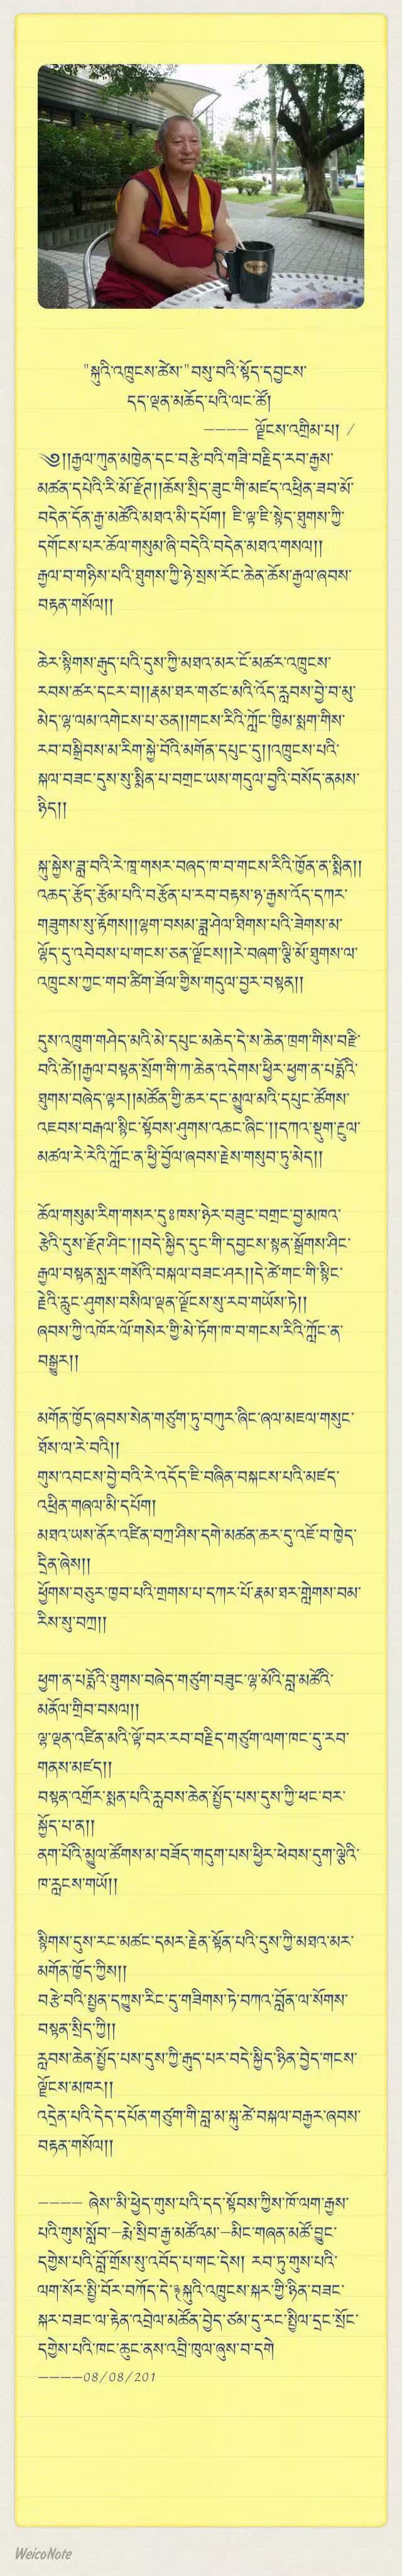 "སྐུའི་འཁྲུངས་ཚེས་"བསུ་བའི་སྟོད་དབྱངས་
དད་ལྡན་མཆོད་པའི་ལང་ཚོ།
---- ལྗོངས་འགྲིམ་པ། /
༄།།རྒྱལ་ཀུན་མཁྱེན་དང་བརྩེ་བའི་གཟི་བརྗིད་རབ་རྒྱས་
མཚན་དཔེའི་རི་མོ་རྫོཊ།།ཆོས་སྲིད་ཟུང་གི་མཛད་འཕྲིན་ཟབ་མོ་
བདེན་དོན་རྒྱ་མཚོའི་མཐའ་མི་དཔོག། ཇི་ལྟ་ཇི་སྙེད་ཐུགས་ཀྱི་
དགོངས་པར་ཆོལ་གསུམ་ཞི་བདེའི་བདེན་མཐའ་གསལ།།
རྒྱལ་བ་གཉིས་པའི་ཐུགས་ཀྱི་ཉེ་སྲས་རོང་ཆེན་ཆོས་རྒྱལ་ཞབས་
བརྟན་གསོལ།།
ཆེར་སྙིགས་རྒུད་པའི་དུས་ཀྱི་མཐའ་མར་ངོ་མཚར་འཁྲུངས་
རབས་ཚར་དངར་བ།།རྣམ་ཐར་གཙང་མའི་འོད་རླབས་བྱེ་བ་མུ་
མེད་ལྷ་ལམ་འགེངས་པ་ཅན།།གངས་རིའི་ཀློང་ཁྱིམ་སྨག་གིས་
རབ་བསྒྲིབས་མ་རིག་སྐྱེ་བོའི་མགོན་དཔུང་དུ།།འཁྲུངས་པའི་
སྐལ་བཟང་དུས་སུ་སྨིན་པ་བགྲང་ཡས་གདུལ་བྱའི་བསོད་ནམས་
ཉིད།།
སྐུ་སྐྱེས་ཟླ་བའི་རེ་ཁཱ་གསར་བཞད་ཁ་བ་གངས་རིའི་ཁྱོན་ན་སྨིན།།
འཆད་རྩོད་རྩོམ་པའི་བརྩོན་པ་རབ་བརྟས་ཧ་རྒྱས་འོད་དཀར་
གཟུགས་སུ་རྟོགས།།ལྷག་བསམ་ཟླ་ཤེལ་ཐིགས་པའི་ཟེགས་མ་
ལྷོད་དུ་འབེབས་པ་གངས་ཅན་ལྗོངས།།རེ་བཞག་ལྕི་མོ་ཐུགས་ལ་
འཁྲུངས་ཀྱང་གབ་ཚིག་ཟོལ་གྱིས་གདུལ་བྱར་བསྟན།།
དུས་འཁྲུག་གཤེད་མའི་མེ་དཔུང་མཆེད་དེ་ས་ཆེན་ཁྲག་གིས་བརྫི་
བའི་ཚེ།།རྒྱལ་བསྟན་སྲོག་གི་ཀ་ཆེན་འདེགས་ཕྱིར་ཕྱག་ན་པདྨོའི་
ཐུགས་བཞེད་ལྟར།།མཚོན་གྱི་ཆར་དང་མྱུལ་མའི་དཔུང་ཚོགས་
འཇབས་བརྒལ་སྙིང་སྟོབས་ཤུགས་འཆང་ཞིང་།།དཀའ་སྡུག་རྡུལ་
མཚལ་རེ་རེའི་ཀློང་ན་ཕྱི་བྱོལ་ཞབས་རྗེས་གསུབ་ཏུ་མེད།།
ཆོལ་གསུམ་རིག་གསར་དུཿཁས་ཉེར་བཟུང་བགྲང་བྱ་མཁའ་
རྩེའི་དུས་རྫོཊ་ཤིང་།།བདེ་སྐྱིད་དུང་གི་དབྱངས་སྙན་སྒྲོགས་ཤིང་
རྒྱལ་བསྟན་སླར་གསོའི་བསྐལ་བཟང་ཤར།།དེ་ཚེ་གང་གི་སྙིང་
རྗེའི་རླུང་ཤུགས་བསིལ་ལྡན་ལྗོངས་སུ་རབ་གཡོས་ཏེ།།
ཞབས་ཀྱི་འཁོར་ལོ་གསེར་གྱི་མེ་ཏོག་ཁ་བ་གངས་རིའི་ཀློང་ན་
བསྒྱུར།།
མགོན་ཁྱོད་ཞབས་སེན་གཙུག་ཏུ་བཀུར་ཞིང་ཞལ་མཇལ་གསུང་
ཐོས་ལ་རེ་བའི།།
གུས་འབངས་བྱེ་བའི་རེ་འདོད་ཇི་བཞིན་བསྐངས་པའི་མཛད་
འཕྲིན་གཞལ་མི་དཔོག།
མཐའ་ཡས་ནོར་འཛིན་བཀྲ་ཤིས་དགེ་མཚན་ཆར་དུ་འཇོ་བ་ཁྱེད་
དྲིན་ཞེས།།
ཕྱོགས་བཅུར་ཁྱབ་པའི་གྲགས་པ་དཀར་པོ་རྣམ་ཐར་གླེགས་བམ་
རིས་སུ་བཀྲ།།
ཕྱག་ན་པདྨོའི་ཐུགས་བཞེད་གཙུག་བཟུང་ལྷ་མོའི་བླ་མཚོའི་
མནོལ་གྲིབ་བསལ།།
ལྷ་ལྡན་འཛིན་མའི་ལྟོ་བར་རབ་བརྗིད་གཙུག་ལག་ཁང་དུ་རབ་
གནས་མཛད།།
བསྟན་འགྲོར་སྨན་པའི་རླབས་ཆེན་སྤྱོད་པས་དུས་ཀྱི་ཕང་བར་
སྐྱོད་པ་ན།།
ནག་པོའི་མྱུལ་ཚོགས་མ་བཟོད་གདུག་པས་ཕྱིར་ཕེབས་དུག་ལྕེའི་
ཁ་རླངས་གཡོ།།
སྙིགས་དུས་རང་མཚང་དམར་རྗེན་སྟོན་པའི་དུས་ཀྱི་མཐའ་མར་
མགོན་ཁྱོད་ཀྱིས།།
བརྩེ་བའི་སྤྱན་དཀྱུས་རིང་དུ་གཟིགས་ཏེ་བཀའ་བློན་ལ་སོགས་
བསྟན་སྲིད་ཀྱི།།
རླབས་ཆེན་སྤྱོད་པས་དུས་ཀྱི་རྒུད་པར་བདེ་སྐྱིད་ཉིན་བྱེད་གངས་
ལྗོངས་མཁར།།
འདྲེན་པའི་དེད་དཔོན་གཙུག་གི་བླ་མ་སྐུ་ཚེ་བསྐལ་བརྒྱར་ཞབས་
བརྟན་གསོལ།།
---- ཞེས་་མི་ཕྱེད་གུས་པའི་དད་སྟོབས་ཀྱིས་ཁོ་ལག་རྒྱས་
པའི་གུས་སློབ་—རྨེ་སྲིབ་རྒྱ་མཚོའམ་—མིང་གཞན་མཚོ་བྱུང་
དགྱེས་པའི་བློ་གྲོས་སུ་འབོད་པ་གང་དེས། རབ་ཏུ་གུས་པའི་
ལག་སོར་སྤྱི་བོར་བཀོད་དེ་༸སྐུའི་འཁྲུངས་སྐར་གྱི་ཉིན་བཟང་
སྐར་བཟང་ལ་རྟེན་འབྲེལ་མཚོན་བྱེད་ཙམ་དུ་རང་སྤྱིལ་དྲང་སྲོང་
དགྱེས་པའི་ཁང་ཆུང་ནས་འབྲི་ཁུལ་ཞུས་བ་དགེ
----08/08/201
WeicoNote